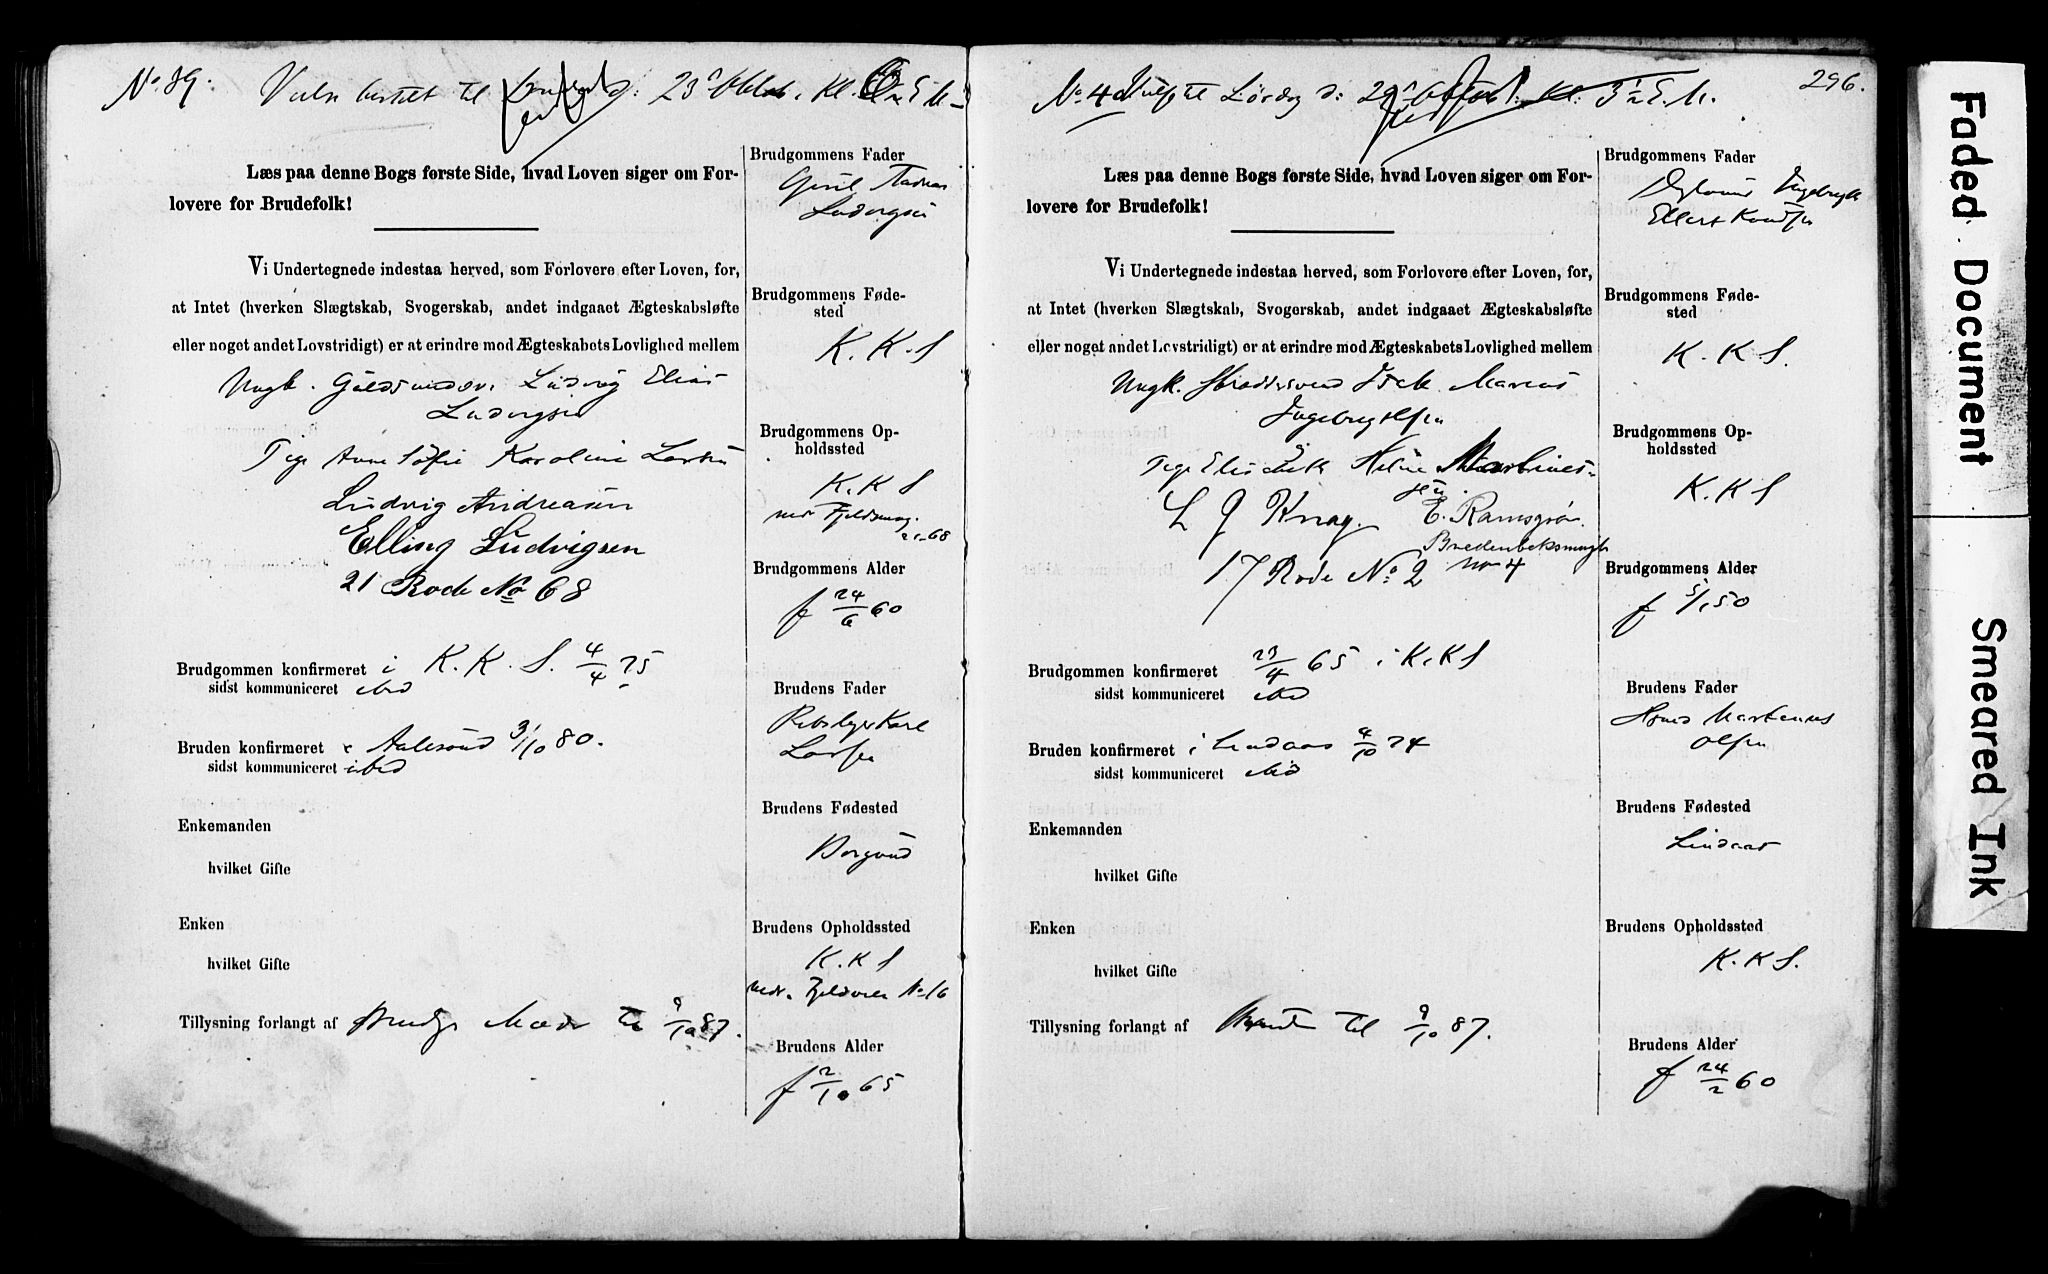 No 39. Vielse bestilt til d: 23 Oktob. Kl. E M
Læs paa denne Bogs første Side, hvad Loven siger om For-
lovere for Brudefolk!
Vi Undertegnede indestaa herved, som Forlovere efter Loven, for,
at Intet (hverken Slægtskab, Svogerskab, andet indgaaet Ægteskabsløfte
eller noget andet Lovstridigt) er at erindre mod Ægteskabets Lovlighed mellem
Ungk. Ludvig Elias
Ludvigsen
Pige Anne Sofie Karoline Larsen
Ludvig Andreasen
Elling Ludvigsen
21 Rode No 68
Brudgommen konfirmeret i K. K. S. 4/4 75
sidst kommuniceret ibid
Bruden konfirmeret i Aalesund 3/10 80.
sidst kommuniceret ibid
Enkemanden
hvilket Gifte
Enken
hvilket Gifte
Tillysning forlangt af Brudgs Moder til 9/10 87.
Brudgommens Fader
Ludvigsen
Brudgommens Føde-
sted
K. K. S
Brudgommens Op-
holdssted
K. K S
nedr Fjeldsmug.
21-68
Brudgommens Alder
f 24/6 60
Brudens Fader
Karl
Larsen
Brudens Fødested
Borgund
Brudens Opholdssted
K. K S
nedr. No 16
Brudens Alder
f 2/10 65
296.
No 40 til Lørdag d: 29 Oktob. Kl: 3 1/2 E. M.
Læs paa denne Bogs første Side, hvad Loven siger om For-
lovere for Brudefolk!
Vi Undertegnede indestaa herved, som Forlovere efter Loven, for,
at Intet (hverken Slægtskab, Svogerskab, andet indgaaet Ægteskabsløfte
eller noget andet Lovstridigt) er at erindre mod Ægteskabets Lovlighed mellem
Ungk. Skreddersvend Isak Marius
Ingebrigtsen
Pige Elisabeth Heline Martines-
sen.
L J Knag. E. Ramsgrøn.
Bredenbeksmuget
No 4
17 Rode No 2
Brudgommen konfirmeret 23/4 65 i K. K S
sidst kommuniceret ibid
Bruden konfirmeret i Lindaas 4/10 74
sidst kommuniceret ibid
Enkemanden
hvilket Gifte
Enken
hvilket Gifte
Tillysning forlangt af til 9/10 87.
Brudgommens Fader
Ingebrigt
Ellert Knudsen
Brudgommens Føde-
sted
K. K S.
Brudgommens Op-
holdssted
K. K S
Brudgommens Alder
f 5/1 50
Brudens Fader
Hans Martinus
Olsen
Brudens Fødested
Lindaas
Brudens Opholdssted
K. K S.
Brudens Alder
f 24/2 60
Faded Document
Smeared Ink